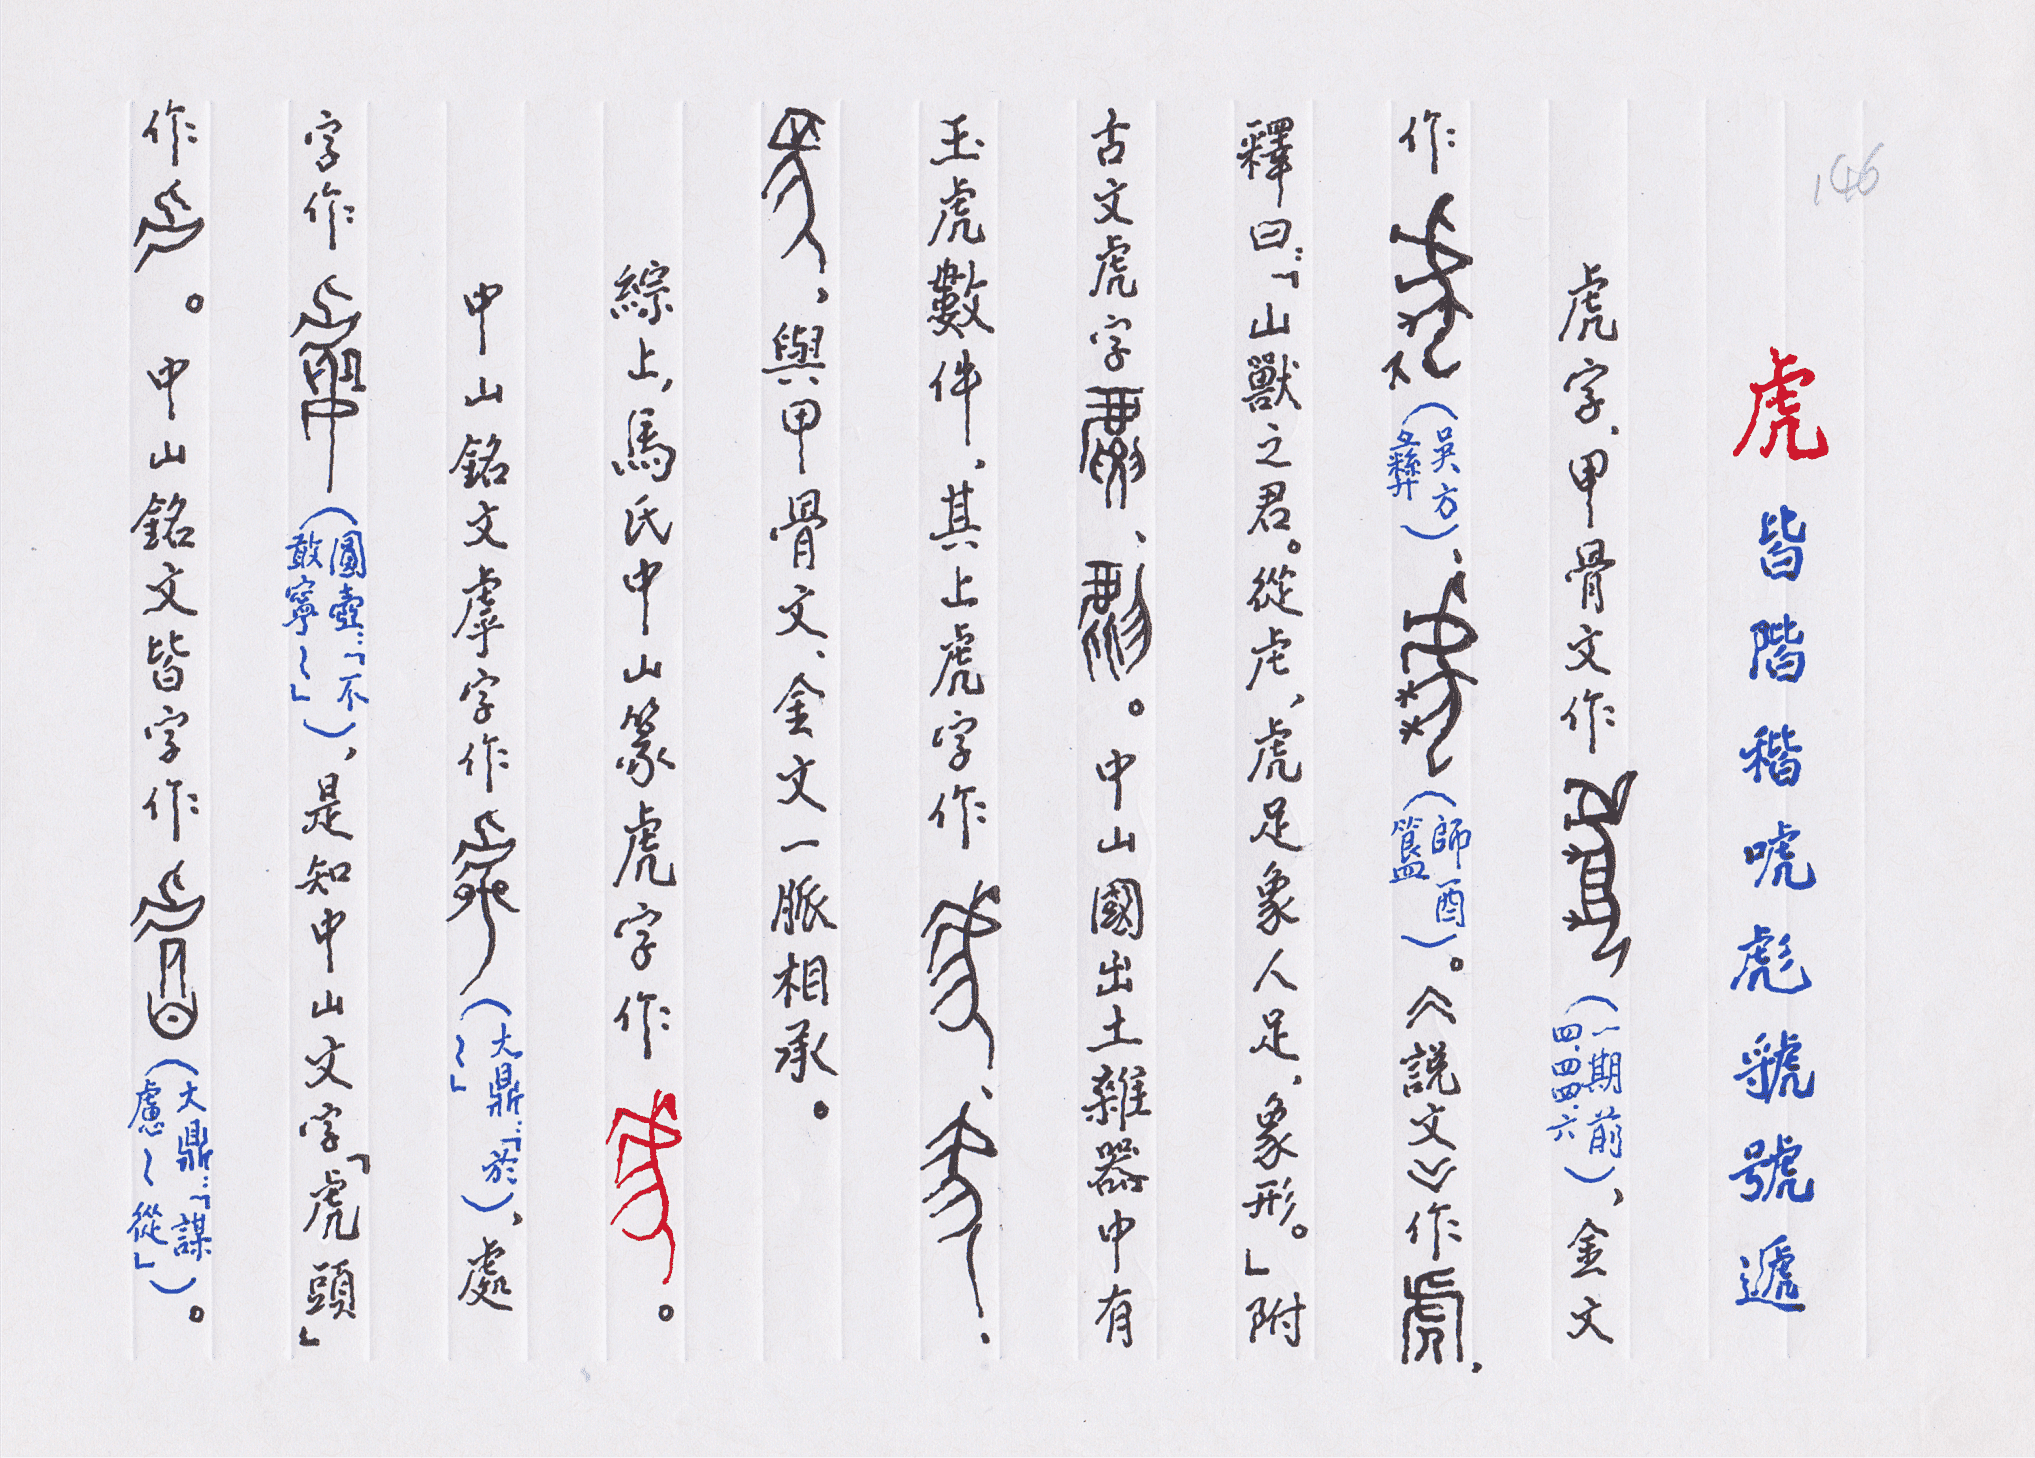 146
虎 皆 階 稭 唬 彪 虢 號 遞
虎字、甲骨文作（一期前四.四四.六）、金文
作（吳方彝）、（師酉簋）。《說文》作、
釋曰：「山獸之君。從虍、虎足象人足、象形。」附
古文虎字、。中山國出土雜器中有
玉虎數件、其上虎字作、、
、與甲骨文、金文一脈相承。
綜上，馬氏中山篆虎字作。
中山銘文虖字作（大鼎：「於～」）、處
字作（圓壺：「不敢寧～」）、是知中山文字「虎頭」
作。中山銘文皆字作（大鼎：「謀慮～從」）。